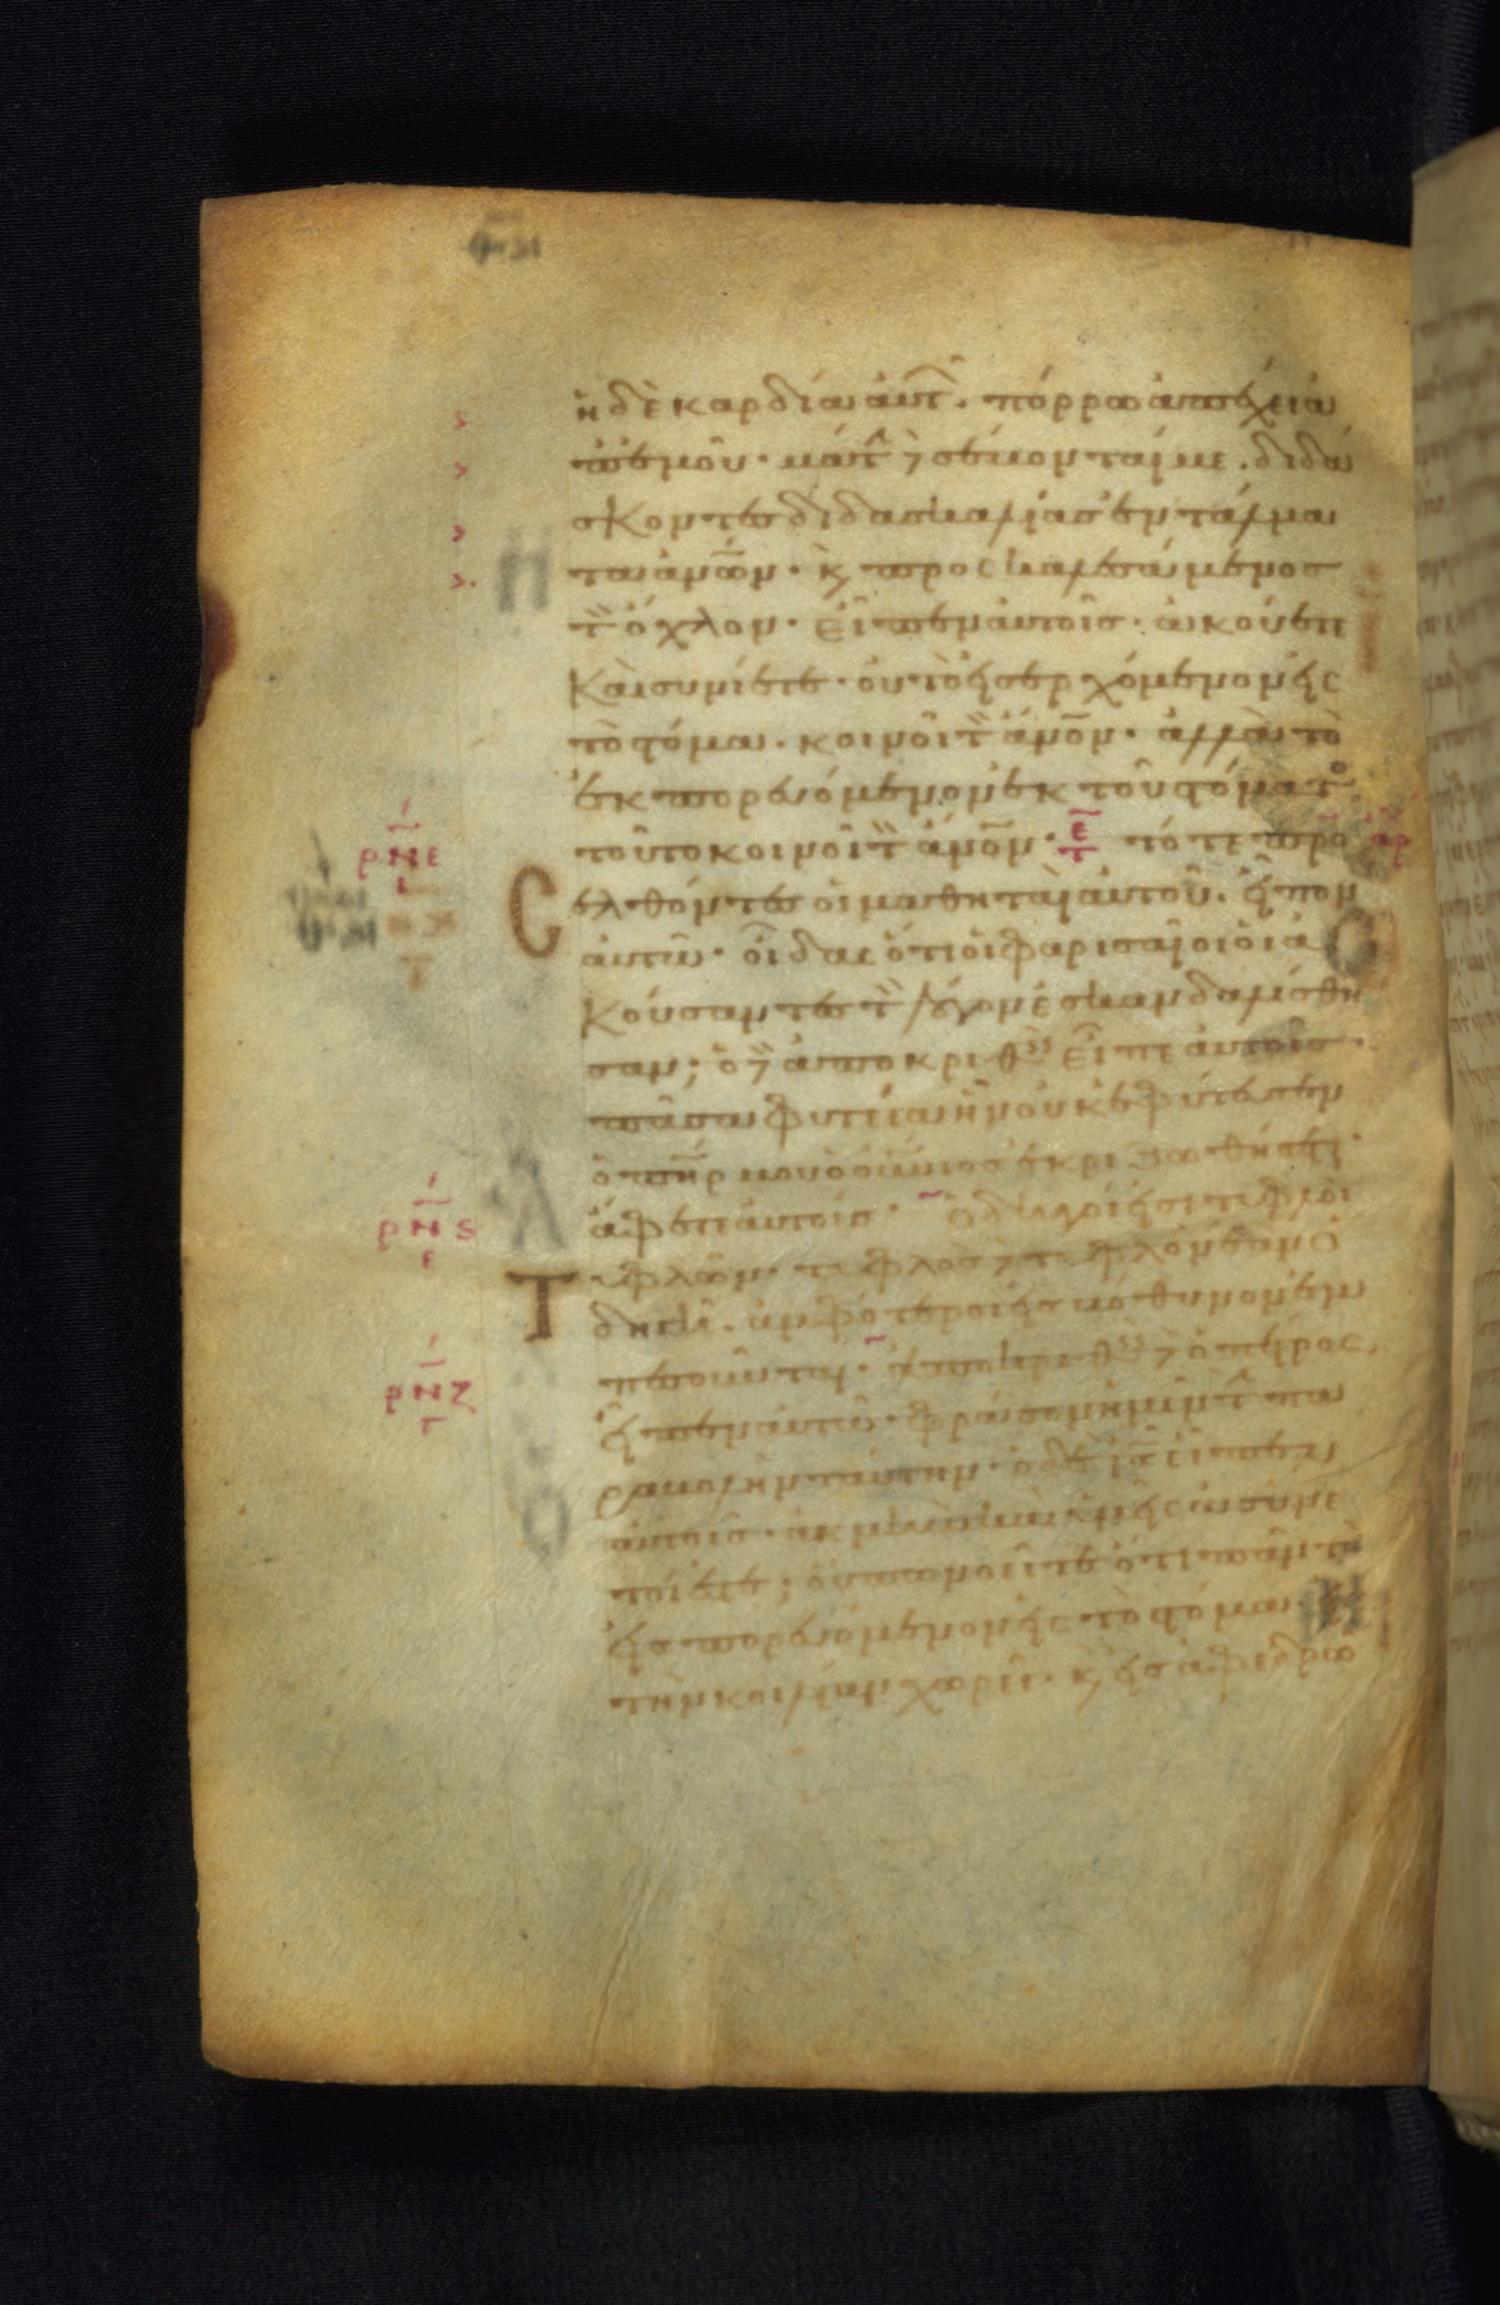 ἡ δὲ καρδία αὐτ πόρρω ἀπέχει ἀ
π ἐμοῦ· μάτ δὲ σέβονταί με. διδά
σκοντες διδασκαλίας ἐντάλμα
τα ἀνων· κ προσκαλεσάμενος
τ ὄχλον· εἶπεν αὐτοῖς· ἀκούετε
καὶ συνίετε· οὐ τὸ εἰσερχόμενον εἰς
τὸ στόμα· κοινοῖ τ ἀνον· ἀλλὰ τὸ
ἐκπορευόμενον ἐκ τοῦ στόματο
τοῦτο κοινοῖ τ ἀνον· τότε προ
σελθόντες οἱ μαθηταὶ αὐτοῦ· εἶπον
αὐτῶ· οἶδας ὅτι οἱ φαρισαῖοι οἱ ἀ
κούσαντες τ λόγον ἐσκανδαλίσθη
σαν; ὁ δὲ ἀποκριθεὶς εἶπε αὐτοῖς·
πᾶσα φυτεία ἣν οὐκ ἐφύτευσεν
ὁ πηρ μου ὁ οὐνιος ἐκριζωθήσεται·
ἄφετε αὐτοίς· ὁδηγοί εἰσι τυφλοὶ
τυφλῶν· τυφλὸς δὲ τυφλὸν ἐὰν ὁ
δηγῆ· ἀμφότεροι εἰς βόθυνον ἐμ
πεσοῦνται· ἀποκριθεὶς δὲ ὁ πέτρος
εἶπεν αὐτῶ· φράσον ἡμῖν τ πα
ραβολὴν ταύτην· ὁ δὲ ις εἶπεν
αὐτοῖς· ἀκμὴν καὶ ὑμεῖς ἀσύνε
τοί ἐστε; οὔπω νοεῖτε ὅτι πᾶν τὸ
εἰσπορευόμενον εἰς τὸ στόμα· εἰς
τὴν κοιλίαν χωρεῖ· κ εἰς ἀφεδρῶ
ρνε
ι
ρνς
ε
ρνζ
ι